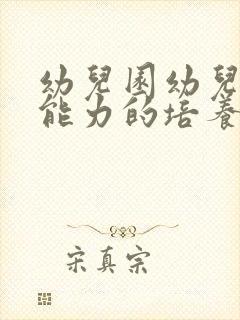 幼兒園幼兒
能力的培養
宋真宗